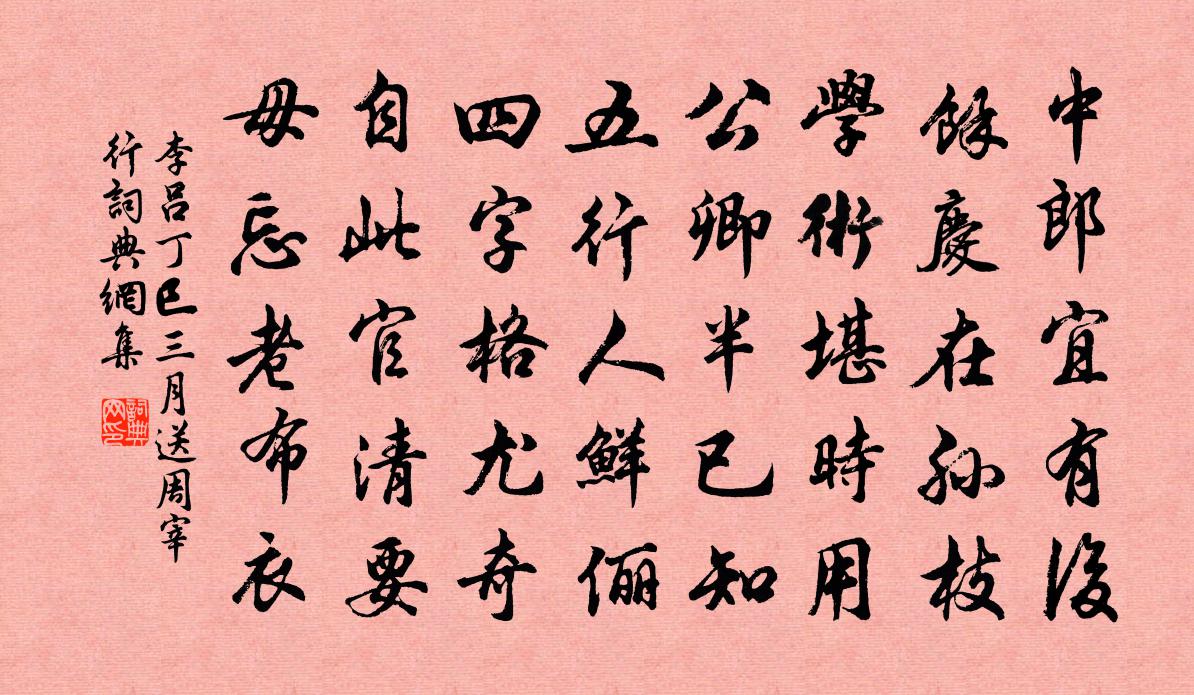 中郎宜有後
餘慶在孫枝
學術堪時用
公卿半已知
五行人鮮儷
四字格尤奇
自此官清要
毋忘老布衣
李呂丁巳三月送周宰
行詞典網集
詞典網印